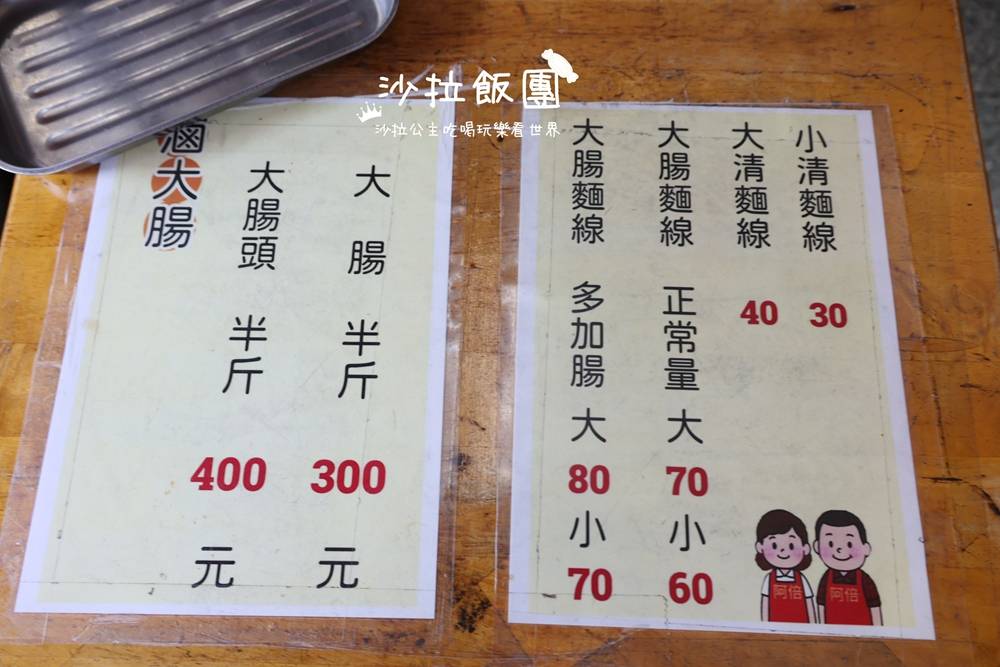 沙拉飯團
沙拉公主吃喝玩樂看世界
滷大腸
大腸頭 半斤 400 元
大腸 半斤 300 元
小清麵線 30
大清麵線 40
大腸麵線 正常量 大 70 小 60
大腸麵線 多加腸 大 80 小 70
阿倍
阿倍